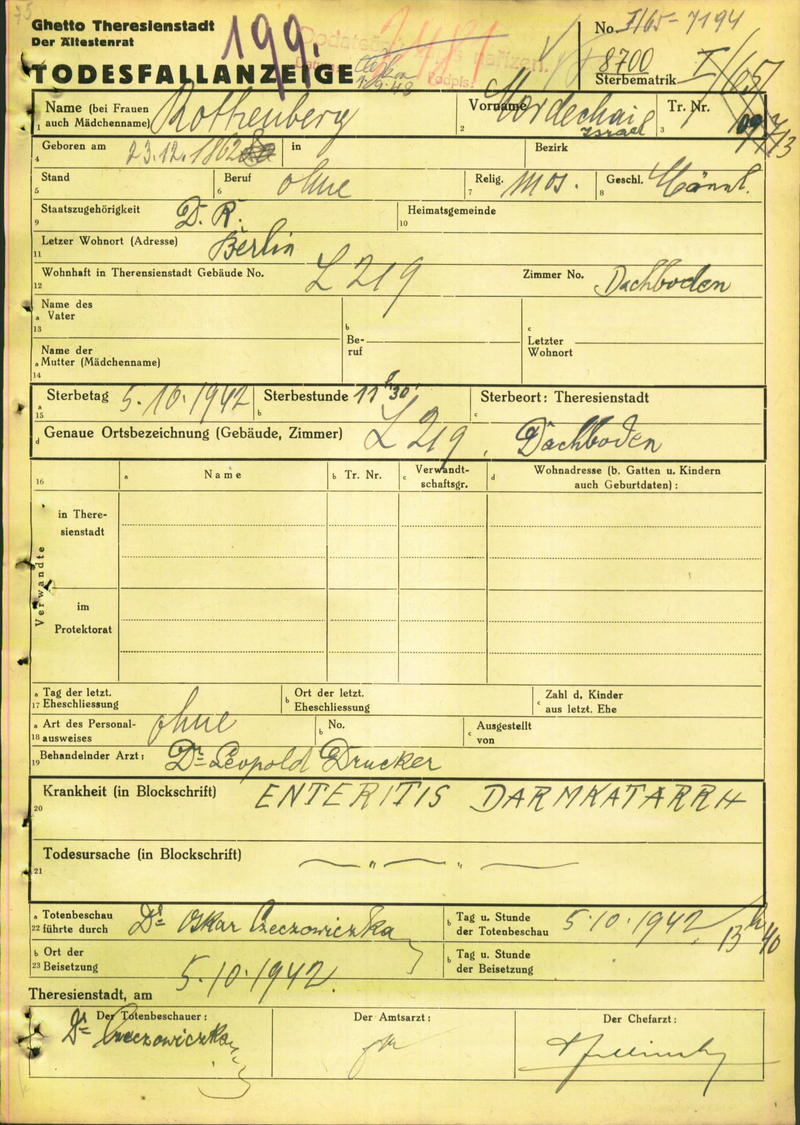 Ghetto Theresienstadt
Der Ältestenrat
199.
No. I/65 - 7194
8700
Sterbematrik I/65
TODESFALLANZEIGE
Name (bei Frauen auch Mädchenname) Rothenberg Vorname Mordechai Israel Tr. Nr.
1 2 3
Geboren am 23.12.1862 in Bezirk
4
Stand Beruf ohne Relig. mos. Geschl. Männl.
5 6 7 8
Staatszugehörigkeit D. R. Heimatsgemeinde
9 10
Letzer Wohnort (Adresse) Berlin
11
Wohnhaft in Therensienstadt Gebäude No. L 219 Zimmer No. Dachboden
12
Name des
a Vater
13
b Beruf
c Letzter Wohnort
Name der
a Mutter (Mädchenname)
14
a Sterbetag 5.10.1942 b Sterbestunde 11h 30' c Sterbeort: Theresienstadt
15
d Genaue Ortsbezeichnung (Gebäude, Zimmer) L 219, Dachboden
16 a Name b Tr. Nr. c Verwandtschaftsgr. d Wohnadresse (b. Gatten u. Kindern auch Geburtdaten) :
Verwandte
in Theresienstadt
im Protektorat
a Tag der letzt. b Ort der letzt. c Zahl d. Kinder
17 Eheschliessung Eheschliessung aus letzt. Ehe
a Art des Personal- ohne b No. c Ausgestellt
18 ausweises von
19 Behandelnder Arzt : Dr Leopold Drucker
Krankheit (in Blockschrift) ENTERITIS DARMKATARRH
20
Todesursache (in Blockschrift) — " — " —
21
a Totenbeschau Dr Oskar Czeczowiczka b Tag u. Stunde 5.10.1942 13h 40
22 führte durch der Totenbeschau
b Ort der b Tag u. Stunde
23 Beisetzung der Beisetzung
Theresienstadt, am 5.10.1942.
Der Totenbeschauer : Der Amtsarzt : Der Chefarzt :
Dr Czeczowiczka